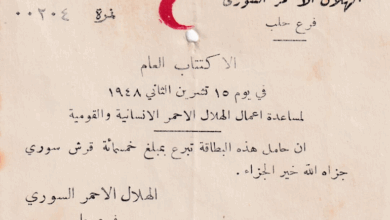 الهلال الاحمر السوري
فرع حلب
نمرة ٠٠٢٠٤
الاكتتاب العام
في يوم ١٥ تشرين الثاني ١٩٤٨
لمساعدة اعمال الهلال الاحمر الانسانية والقومية
ان حامل هذه البطاقة تبرع بمبلغ خمسمائة قرش سوري
جزاه الله خير الجزاء .
الهلال الاحمر السوري